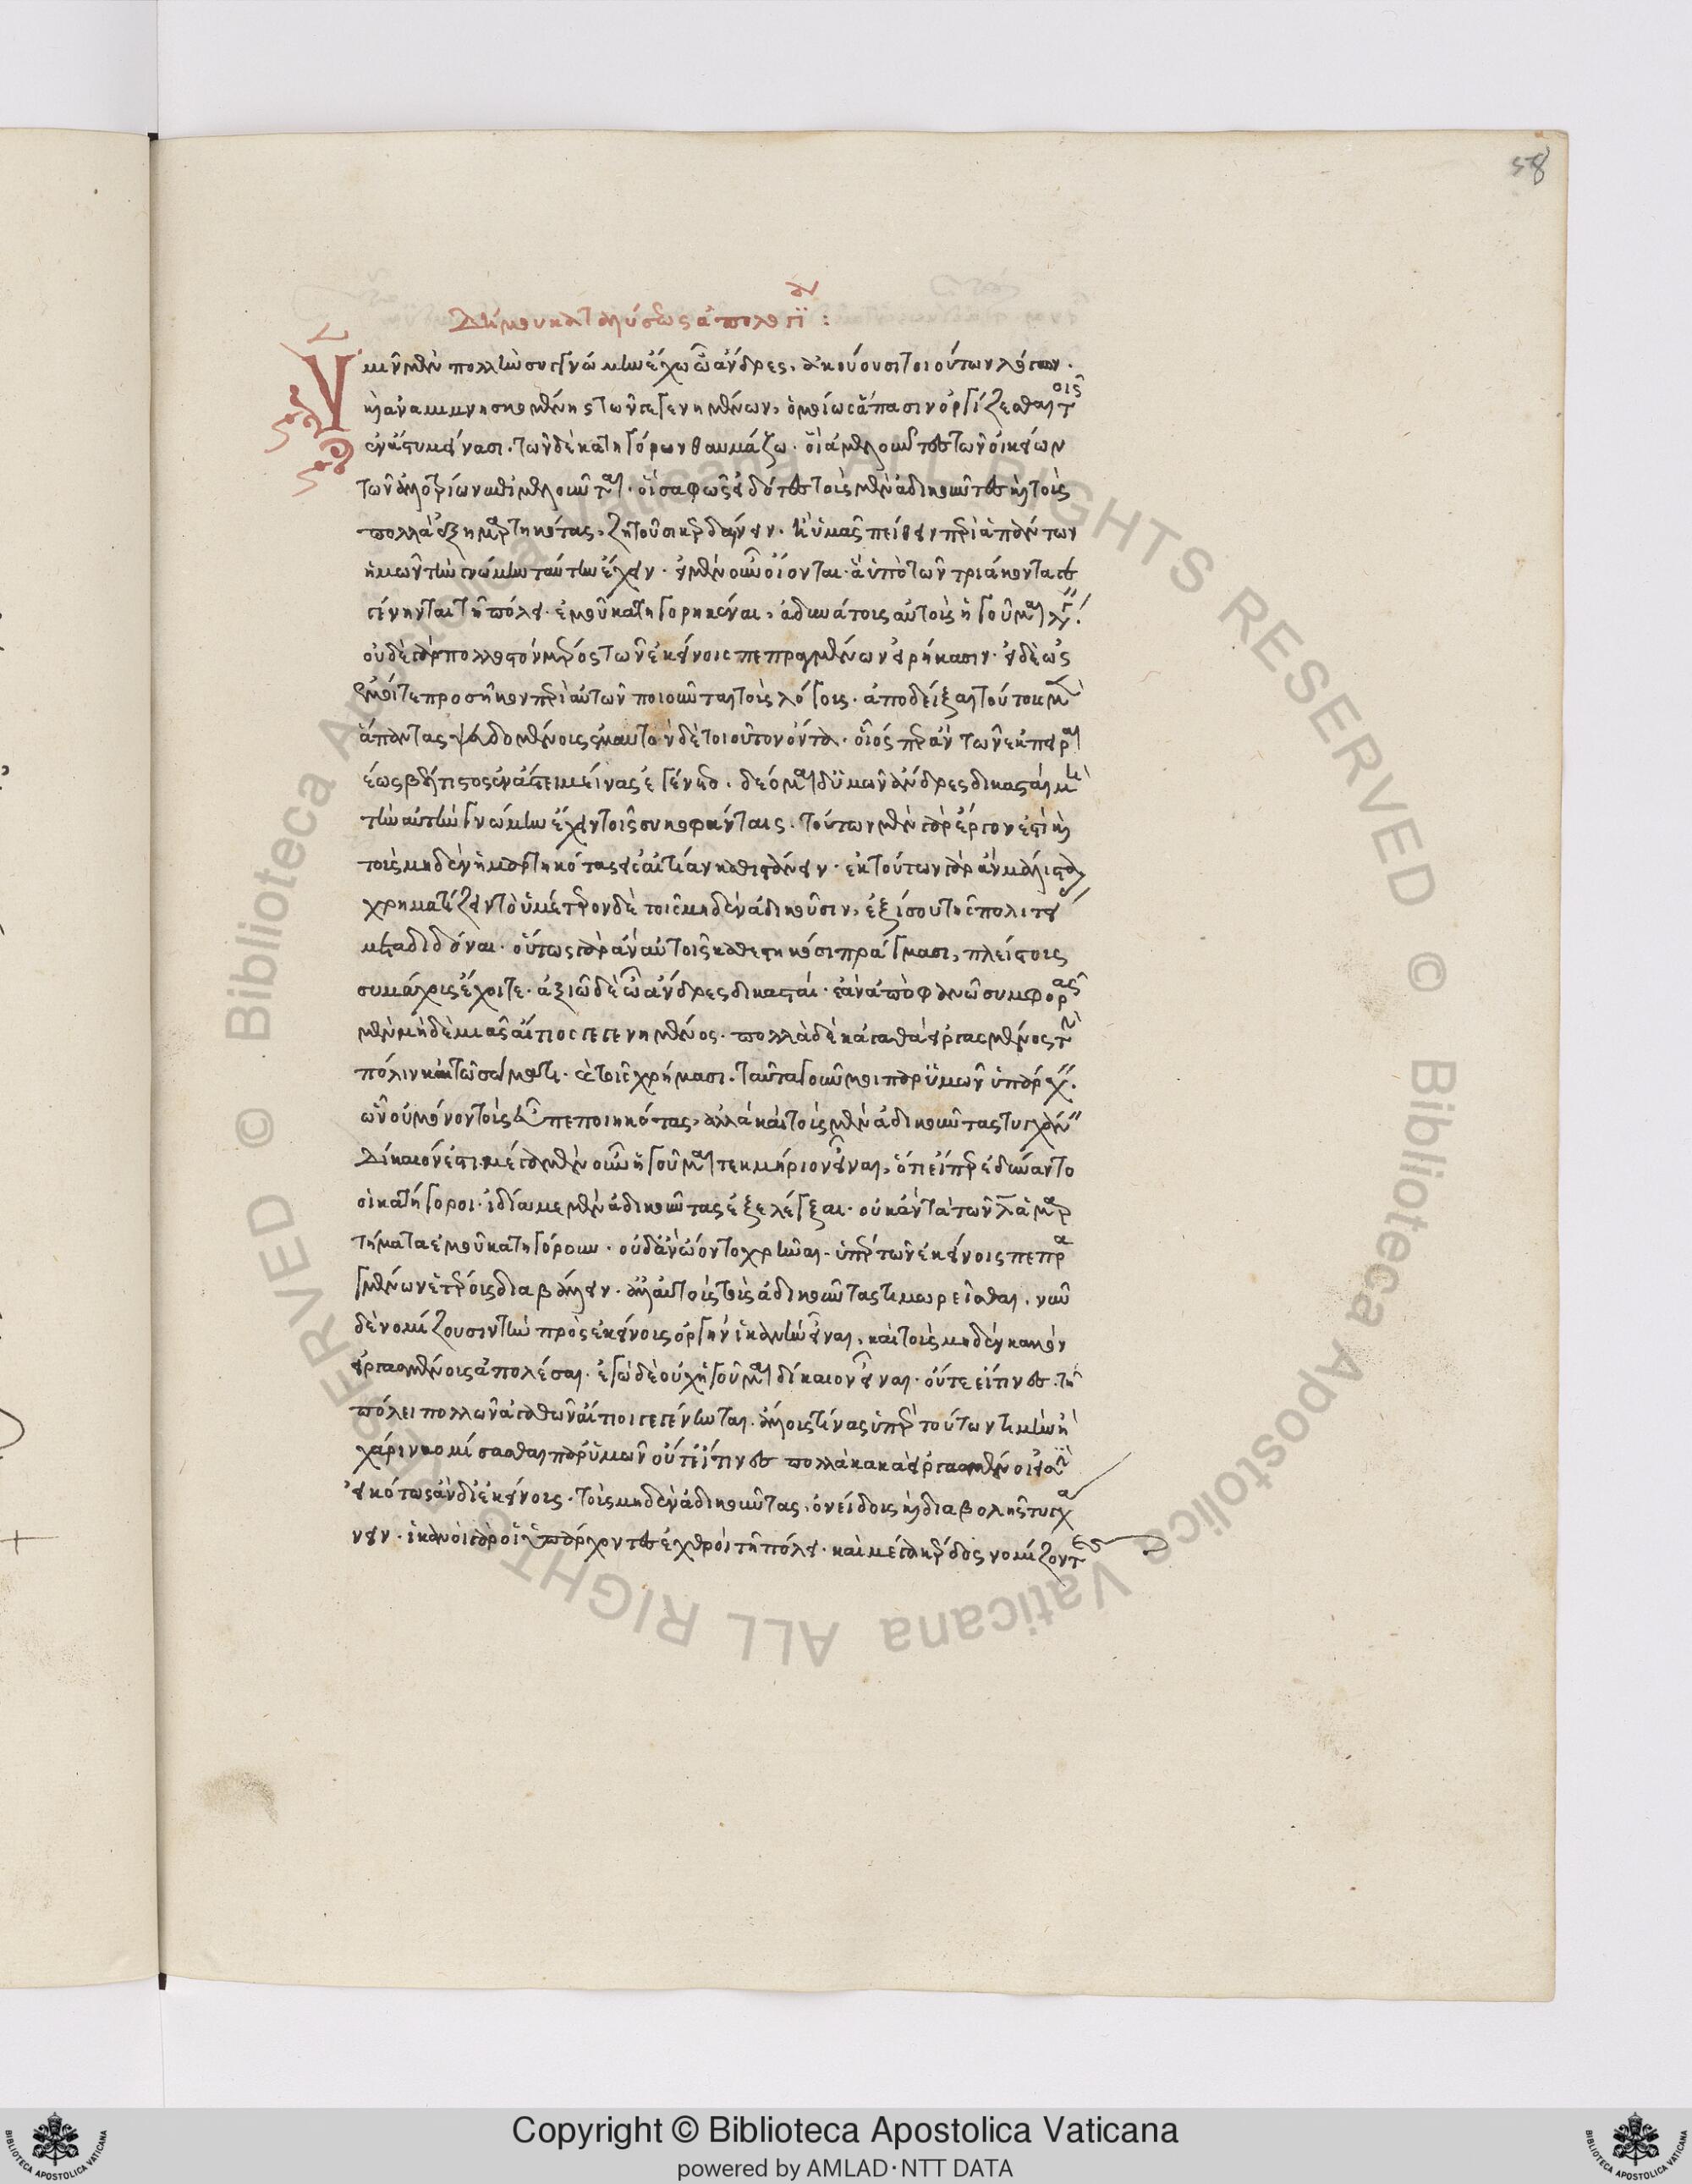 Δήμου καταλύσεως ἀπολογία :
Ὑμῖν μὲν πολλὴν συγγνώμην ἔχω ὦ ἄνδρες, ἀκούουσι τοιούτων λόγων·
καὶ ἀναμιμνησκομένης τῶν γεγενημένων, ὁμοίως ἅπασιν ὀργίζεσθαι τοῖς
ἐν ἄστυ μείνασι. τῶν δὲ κατηγόρων θαυμάζω· οἳ ἀμελοῦντες τῶν οἰκείων
τῶν ἀλλοτρίων ἐπιμελοῦνται· οἳ σαφῶς εἰδότες τοὺς μὲν ἀδικοῦντας καὶ τοὺς
πολλὰ ἐξημαρτηκότας, ζητοῦσι κερδαίνειν. ἢ ὑμᾶς πείθειν περὶ ἁπάντων
ἡμῶν τὴν γνώμην ταύτην ἔχειν. εἰ μὲν οὖν οἴονται ἃ ὑπὸ τῶν τριάκοντα
γένηται τῇ πόλει. ἐμοῦ κατηγορηκέναι, ἀδυνάτους αὐτοὺς ἡγοῦμαι λέγειν.
οὐδὲ γὰρ πολλοστὸν μέρος τῶν ἐκείνοις πεπραγμένων εἰρήκασιν· εἰ δὲ ὡς
ἐμοί τε προσῆκον περὶ αὐτῶν ποιοῦνται τοὺς λόγους. ἀποδείξαι τούτους μὲν
ἅπαντας ψευδομένους ἐμαυτὸν δὲ τοιοῦτον ὄντα. οἷός περ ἂν τῶν ἐκ πειραι
έως βέλτιστος ἐν ἄστει μείνας ἐγένετο. δέομαι δ' ὑμῶν ἄνδρες δικασταί μὴ
τὴν αὐτὴν γνώμην ἔχειν τοῖς συκοφάνταις. τούτων μὲν γὰρ ἔργον ἐστὶ καὶ
τοὺς μηδὲν ἡμαρτηκότας εἰς αἰτίαν καθιστάνειν. ἐκ τούτων γὰρ ἂν μάλιστα
χρηματίζειν τὸ ὑμέτερον δὲ τοῖς μηδὲν ἀδικοῦσιν, ἐξ ἴσου τῆς πολιτείας
μεταδιδόναι. οὕτως γὰρ ἂν αὐτοῖς καθεστηκόσι πράγμασι, πλείστους
συμάχους ἔχοιτε. ἀξιῶ δὲ ὦ ἄνδρες δικασταί. ἐὰν ἀποφανῶ συμφορᾶς
μὲν μηδὲ μιᾶς αἴτιος γεγενημένος. πολλὰ δὲ κἀγαθὰ εἰργασμένος τὴν
πόλιν καὶ τῷ σώματι. καὶ τοῖς χρήμασι. ταῦτα γοῦν μοι παρ' ὑμῶν ὑπάρχειν.
ὧν οὐ μόνον τοὺς εὖ πεποιηκότας, ἀλλὰ καὶ τοὺς μὲν ἀδικοῦντας τυγχάνειν
Δίκαιόν ἐστι. μέγα μὲν οὖν ἡγοῦμαι τεκμήριον εἶναι, ὅτι εἴπερ ἐδύναντο
οἱ κατήγοροι. ἰδίᾳ με μὲν ἀδικοῦντας ἐξελέγξαι. οὐκ ἂν τὰ τῶν λ ἁμαρ
τήματα ἐμοῦ κατηγόρουν. οὐδ' ἂν ᾤοντο χρῆναι. ὑπὲρ τῶν ἐκείνοις πεπρα
γμένων ἑτέρους διαβάλλειν. ἀλλ' αὐτοὺς τοὺς ἀδικοῦντας τιμωρεῖσθαι. νῦν
δὲ νομίζουσιν τὴν πρὸς ἐκείνους ὀργὴν ἱκανὴν εἶναι, καὶ τοὺς μηδὲν κακὸν
εἰργασμένους ἀπολέσαι. ἐγὼ δὲ οὐχ ἡγοῦμαι δίκαιον εἶναι. οὔτε εἴ τινες τῇ
πόλει πολλῶν ἀγαθῶν αἴτιοι γεγένηνται. ἄλλους τινὰς ὑπὲρ τούτων τιμὴν ἢ
χάριν κομίσασθαι παρ' ὑμῶν οὔτ' εἴ τινες πολλὰ κακὰ εἰργασμένοι εἰσὶν
εἰκότως ἂν δι' ἐκείνους. τοὺς μηδὲν ἀδικοῦντας, ὀνείδους καὶ διαβολῆς τυγχά
νειν. ἱκανοὶ γὰρ οἱ ὑπάρχοντες ἐχθροὶ τῇ πόλει. καὶ μέγα κέρδος νομίζοντες